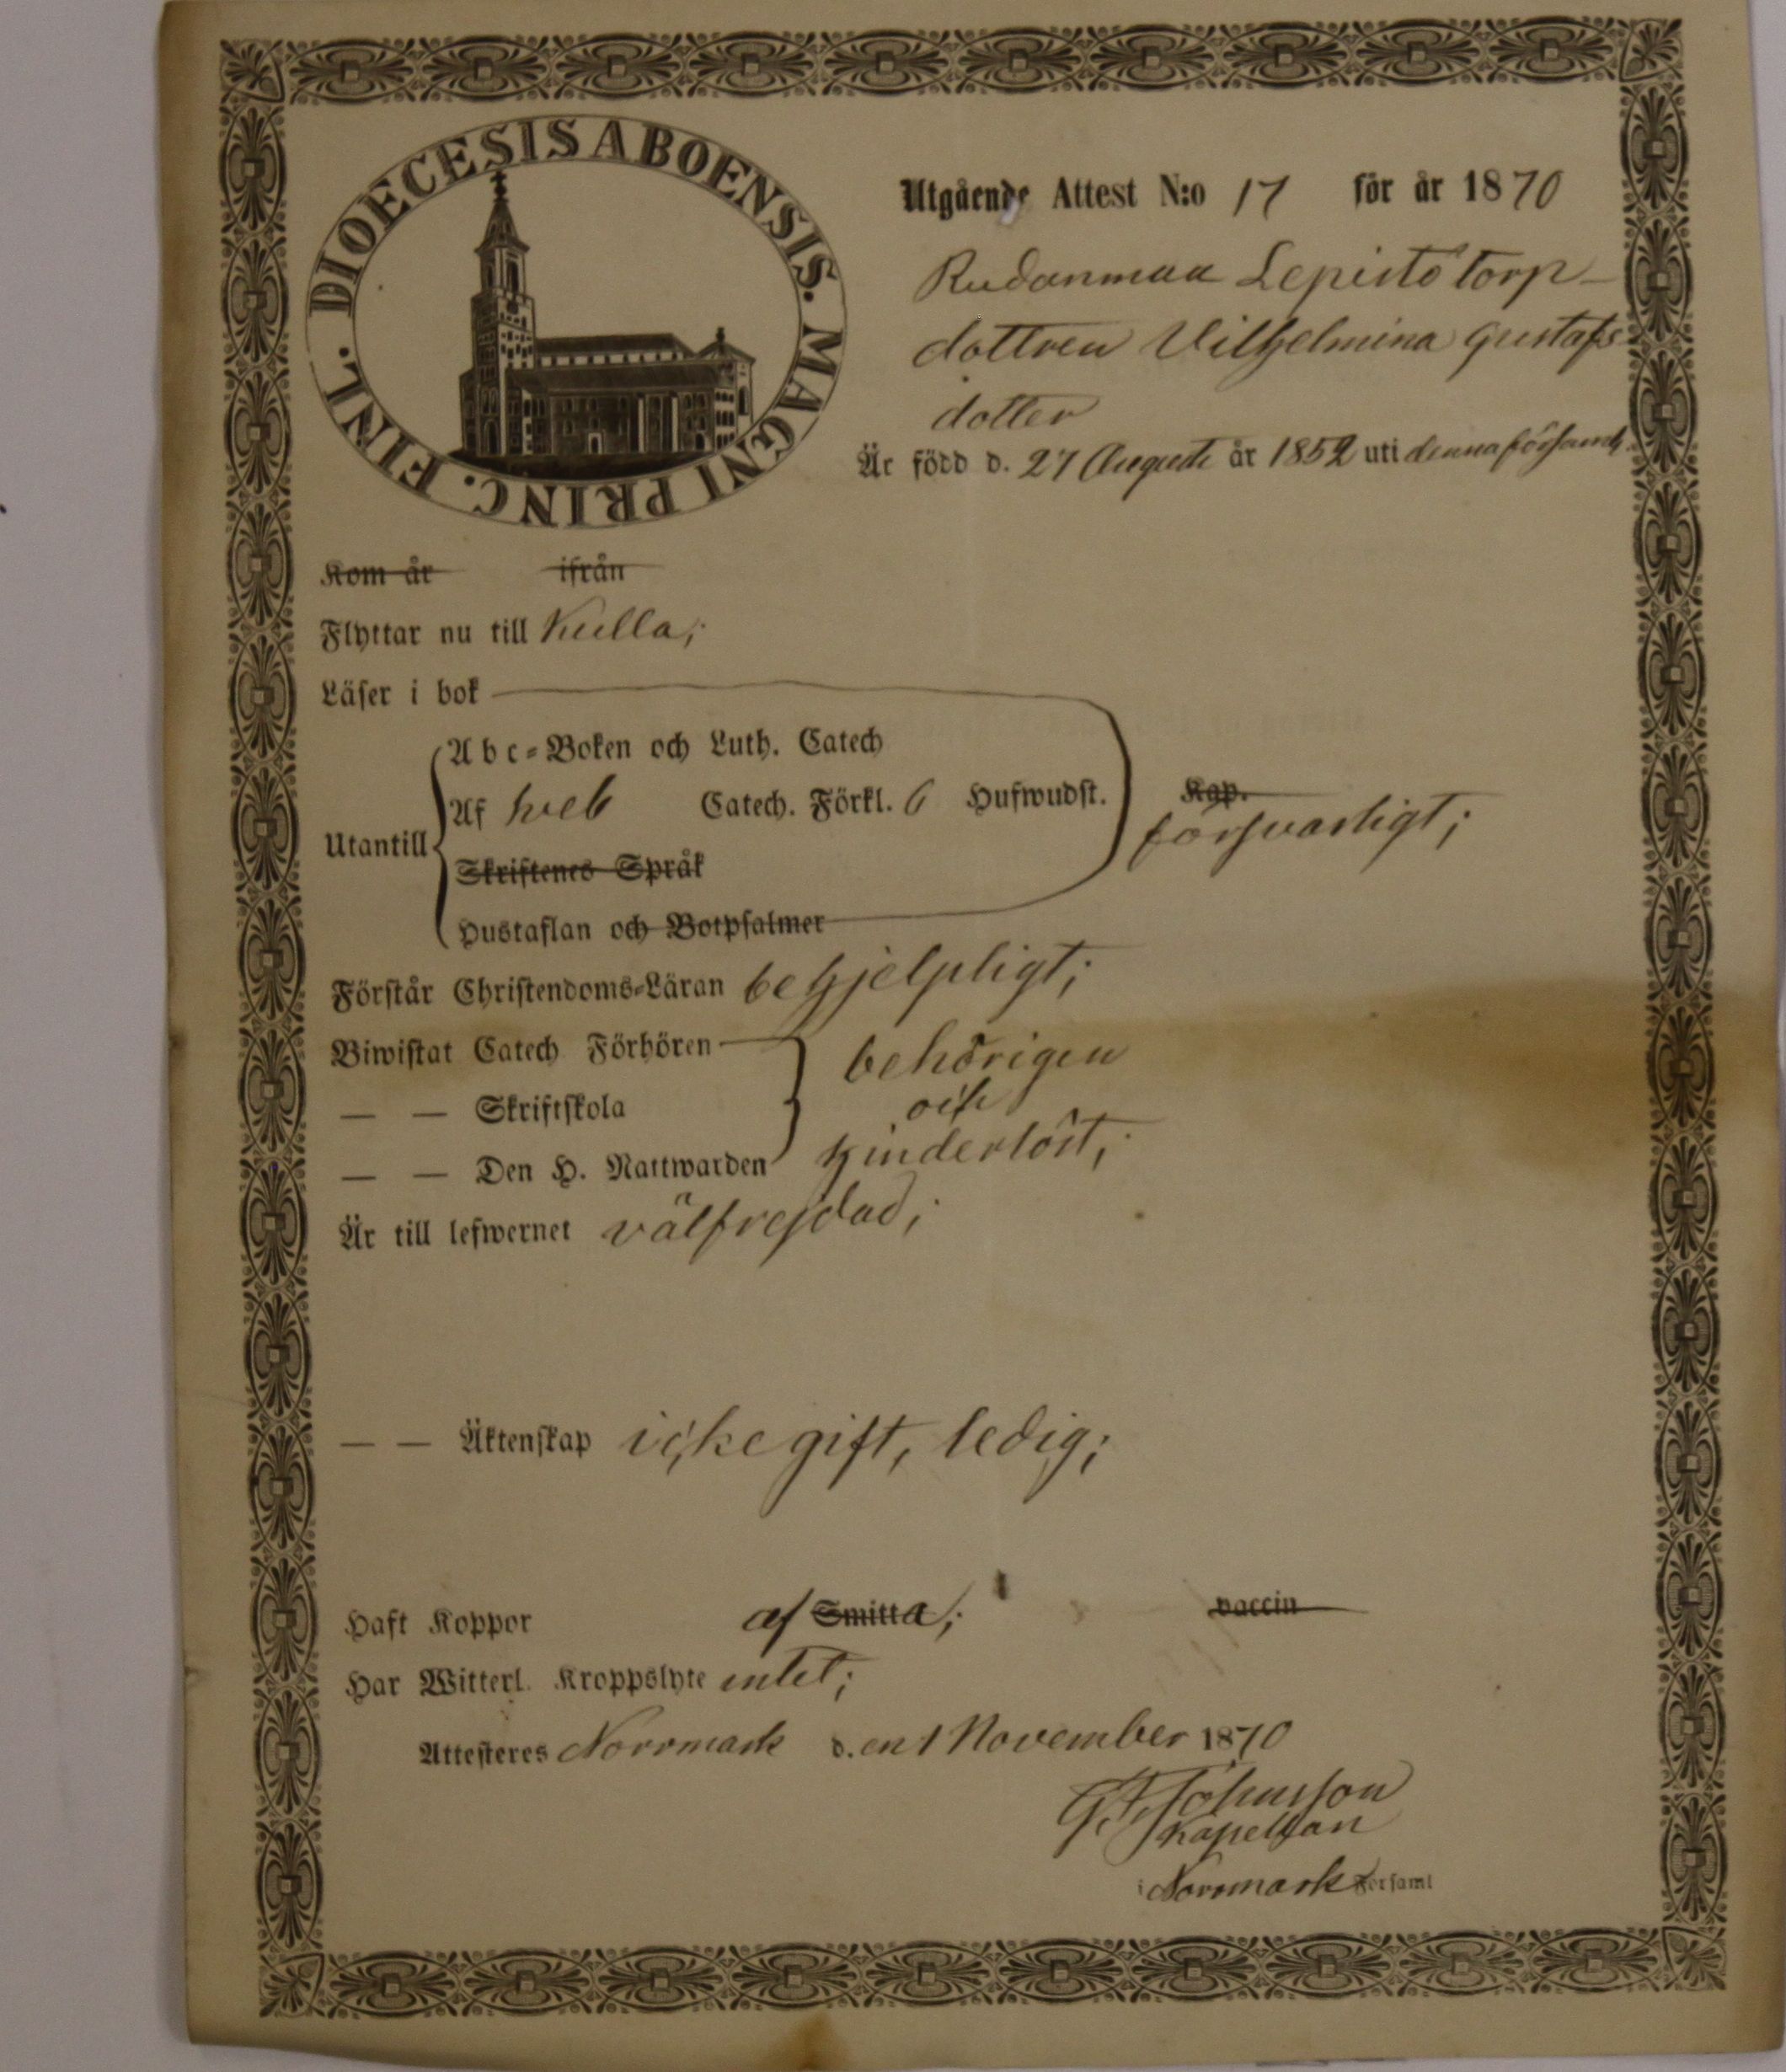 DIOECESIS ABOENSIS. MAGNI PRINC. FINL.
Utgående Attest N:o 17 för år 1870
Rudanmaa Lepistö torp-
dottren Vilhelmina Gustafs
dotter
Är född d. 27 Augusti år 1852 uti denna församl.
Kom år ifrån
Flyttar nu till Kulla;
Läser i bok
Abc-Boken och Luth. Catech
Af Sveb Catech. Förkl. 6 Hufwudst. Kap.
försvarligt;
Utantill
Skriftenes Språk
Hustaflan och Botpsalmer
Förstår Christendoms-Läran behjelpligt;
Biwistat Catech Förhören behörigen
— — Skriftskola och
— — Den H. Nattwarden hinderlöst;
Är till lefwernet välfrejdad;
— — Äktenskap icke gift, ledig;
Haft Koppor af Smitta; vaccin
Har Witterl. Kroppslyte intet;
Attesteres Norrmark d. en 1 November 1870
Johnsson
Kapellan
i Norrmark Församl